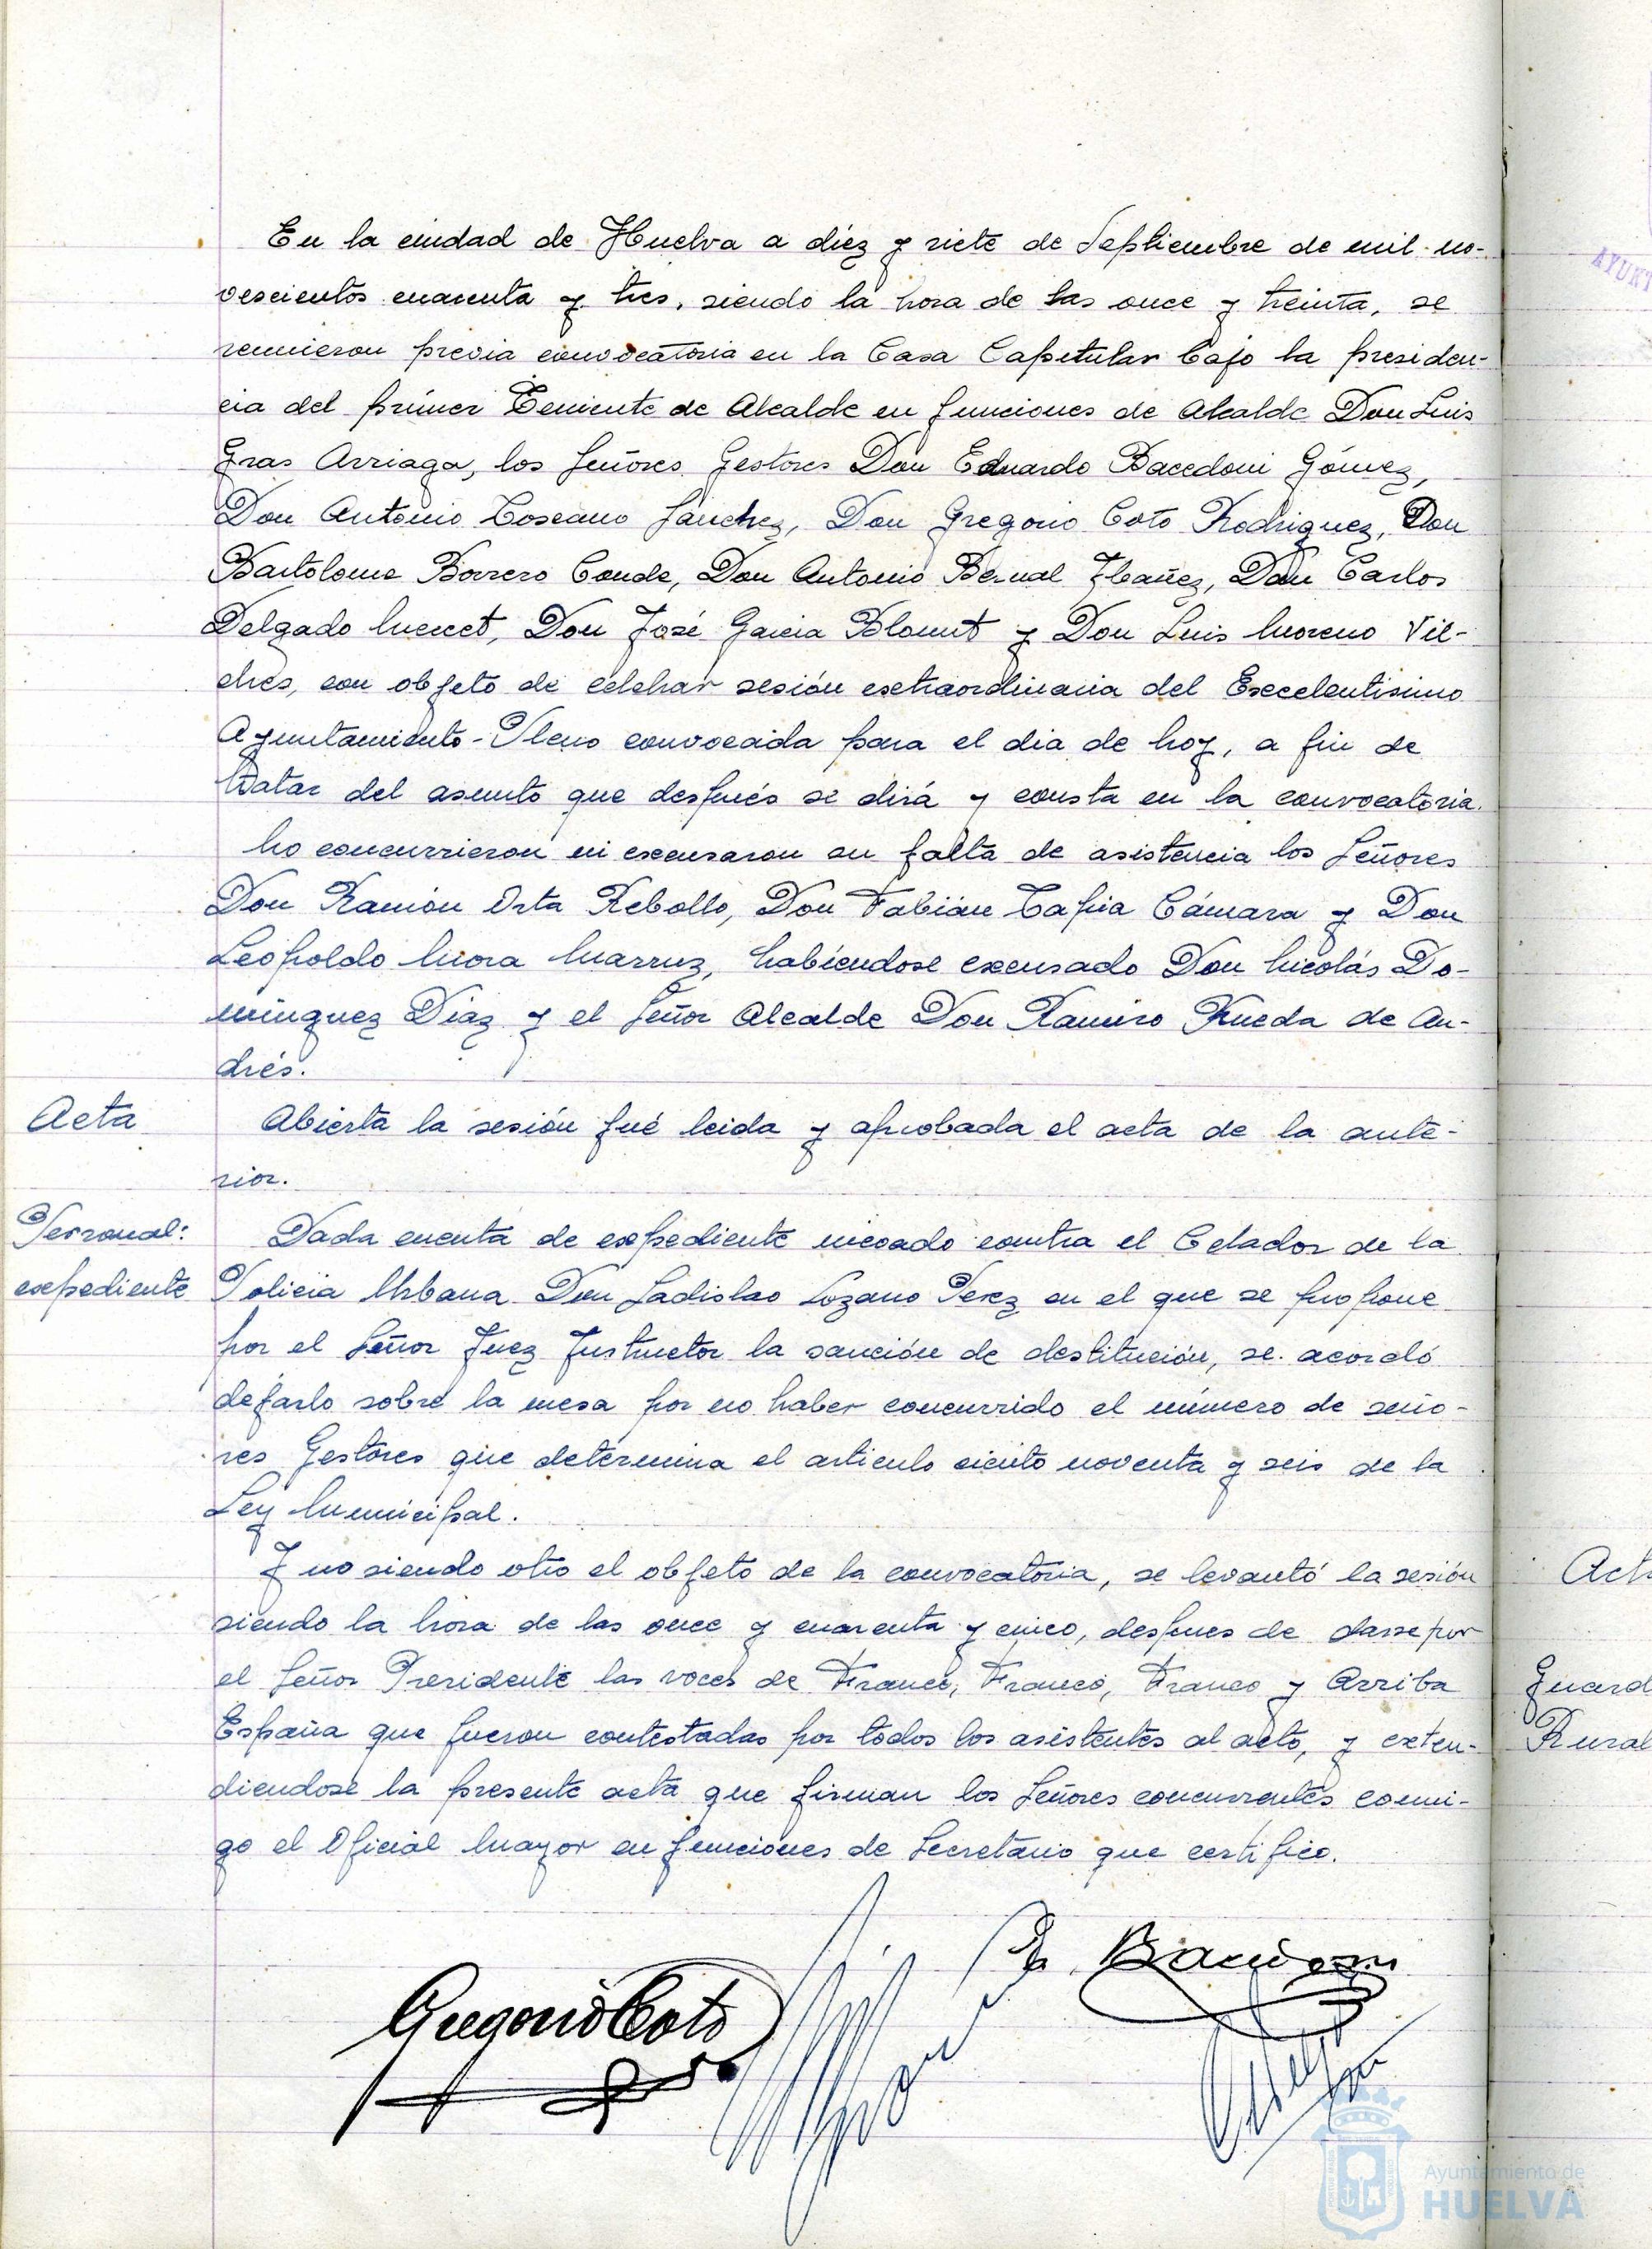 En la ciudad de Huelva a diéz y siete de Septiembre de mil no-
vescientos cuarenta y tres, siendo la hora de las once y treinta, se
reunieron previa convocatoria en la Casa Capitular bajo la presiden-
cia del primer Teniente de Alcalde en funciones de Alcalde Don Luis
Gras Arriaga, los Señores Gestores Don Eduardo Bacedoni Gómez,
Don Antonio Toscano Sánchez, Don Gregorio Coto Rodriguez, Don
Bartolome Borrero Conde, Don Antonio Bernal Ibañez, Don Carlos
Delgado, Don José Garcia Blount y Don Luis Moreno Vil-
ches, con objeto de celebrar sesión extraordinaria del Excelentisimo
Ayuntamiento-Pleno convocada para el dia de hoy, a fin de
tratar del asunto que después se dirá y consta en la convocatoria.
No concurrieron ni excusaron su falta de asistencia los Señores
Don Ramón Orta Rebollo, Don Fabián Tapia Cámara y Don
Leopoldo Mora Marruz, habiéndose excusado Don Nicolás Do-
minguez Diaz y el Señor Alcalde Don Ramiro Rueda de An-
drés.
Acta
Abierta la sesión fué leida y aprobada el acta de la ante-
rior.
Personal:
expediente
Dada cuenta de expediente incoado contra el Celador de la
Policia Urbana Don Ladislao Lozano Perez en el que se propone
por el Señor Juez Instructor la sanción de destitución, se acordó
dejarlo sobre la mesa por no haber concurrido el número de seño-
res Gestores que determina el articulo ciento noventa y seis de la
Ley Municipal.
Y no siendo otro el objeto de la convocatoria, se levantó la sesión
siendo la hora de las once y cuarenta y cinco, despues de darse por
el Señor Presidente las voces de Franco, Franco, Franco y Arriba
España que fueron contestadas por todos los asistentes al acto, y exten-
diendose la presente acta que firman los Señores concurrentes conmi-
go el Oficial Mayor en funciones de Secretario que certifico.
E. Bacedoni
Gregorio Coto
Ayuntamiento de
HUELVA
AYUNT
Act
Guard
Rural